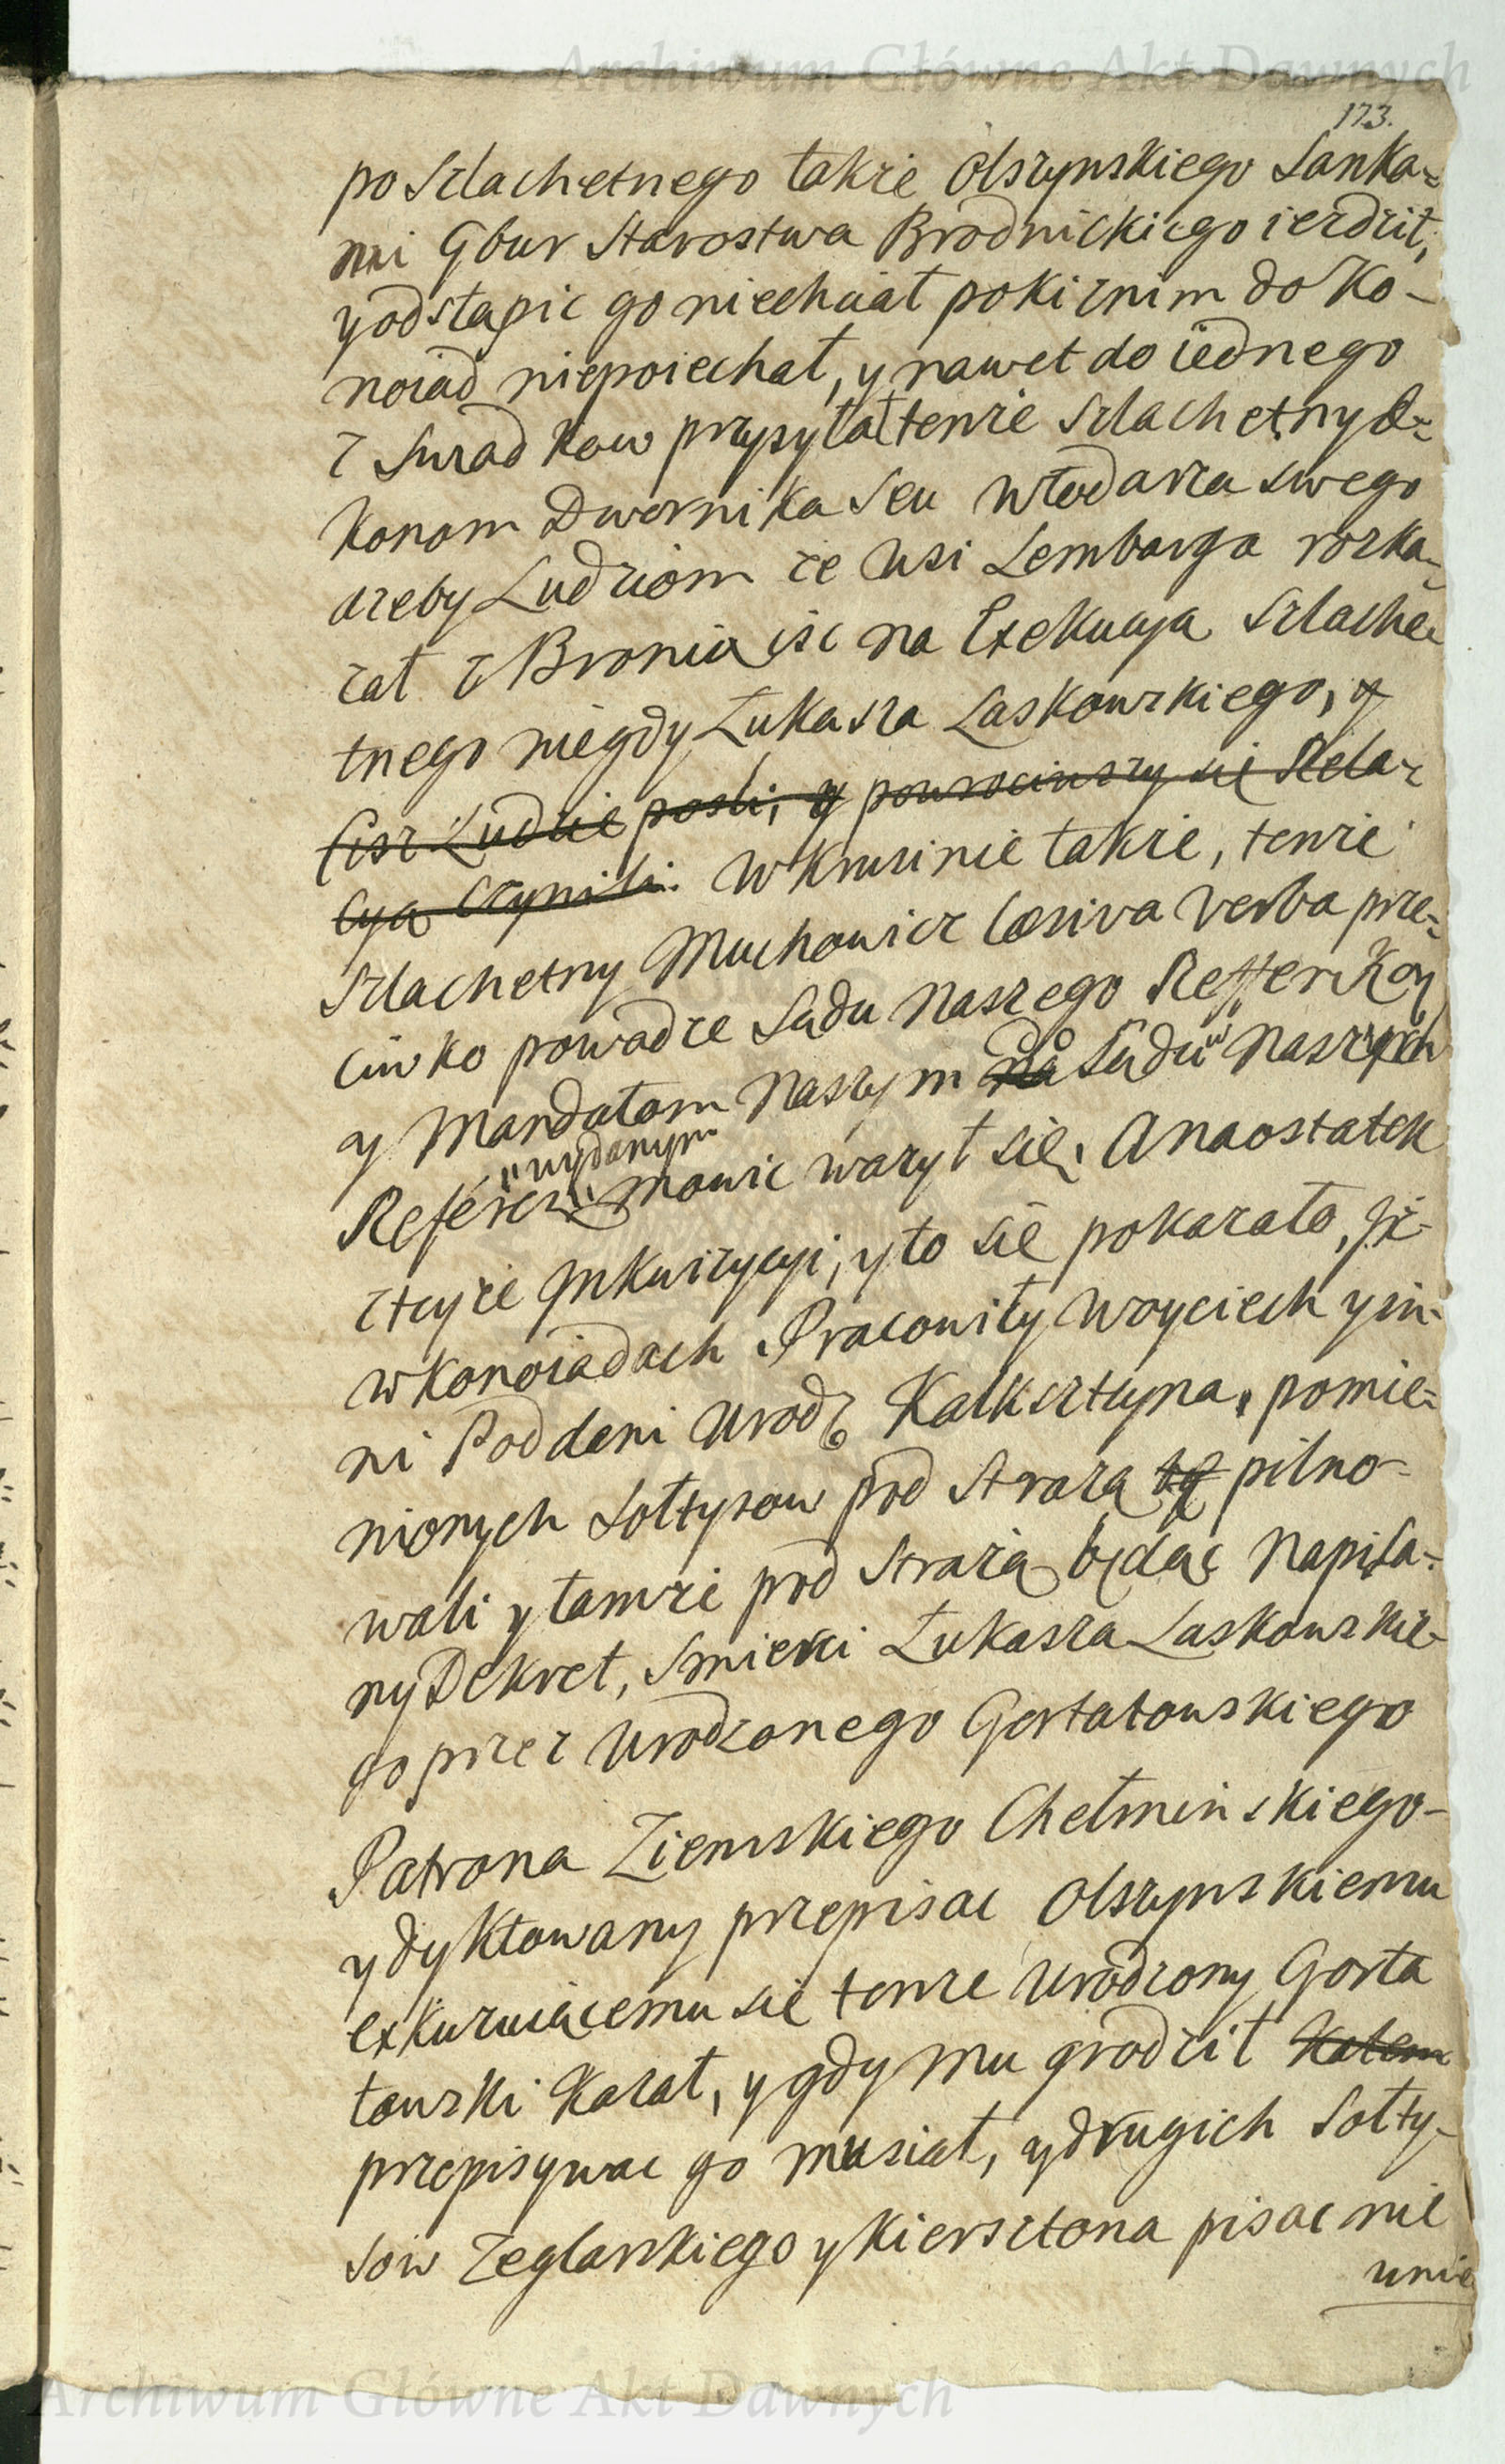 Archiwum Główne Akt Dawnych
173.
po Szlachetnego także Olszynskiego Sanka=
mi Gbur Starostwa Brodnickiego iezdził,
y odstąpic go niechciał poki znim do Ko-
noiad niepoiechał, y nawet do iednego
z Swiadkow przysyłał tenże Szlachetny E-
konom Dwornika Seu Włodarza swego
azeby Ludziom ze Wsi Lembarga rozka-
zał z Bronią isc na Exekucyą Szlache-
tnego niegdy Łukasza Laskowskiego, y
cisz Ludzie posli, y powrociwszy się Rela-
cyą czynili. W Krusinie także, tenże
Szlachetny Muchowicz læsiva verba prze-
ciwko powadze Sądu Naszego Refferskey
y Mandatom Naszym do Sądu Naszych
wydanym
Refer: mowic ważył się. A naostatek
z teyże Inkwizycyi, y to się pokazało, że
w Konoiadach Pracowity Woyciech y in-
ni Poddani Urodz Kalksztyna, pomie-
nionych Sołtysow pod Strażą pilno-
wali y tamże pod Strażą będąc Napisa-
ny Dekret, Smierci Łukasza Laskowskie-
go przez Urodzonego Gortatowskiego
Patrona Ziemskiego Chełminskiego-
y dyktowany przepisac Olszynskiemu
exkuzuiącemu się tenże Urodzony Gorta
towski Kazał, y gdy mu groził
przepisywac go musiał, y drugich Sołty-
sow Zeglarskiego y Kiersztona pisac nie
umie
Archiwum Główne Akt Dawnych